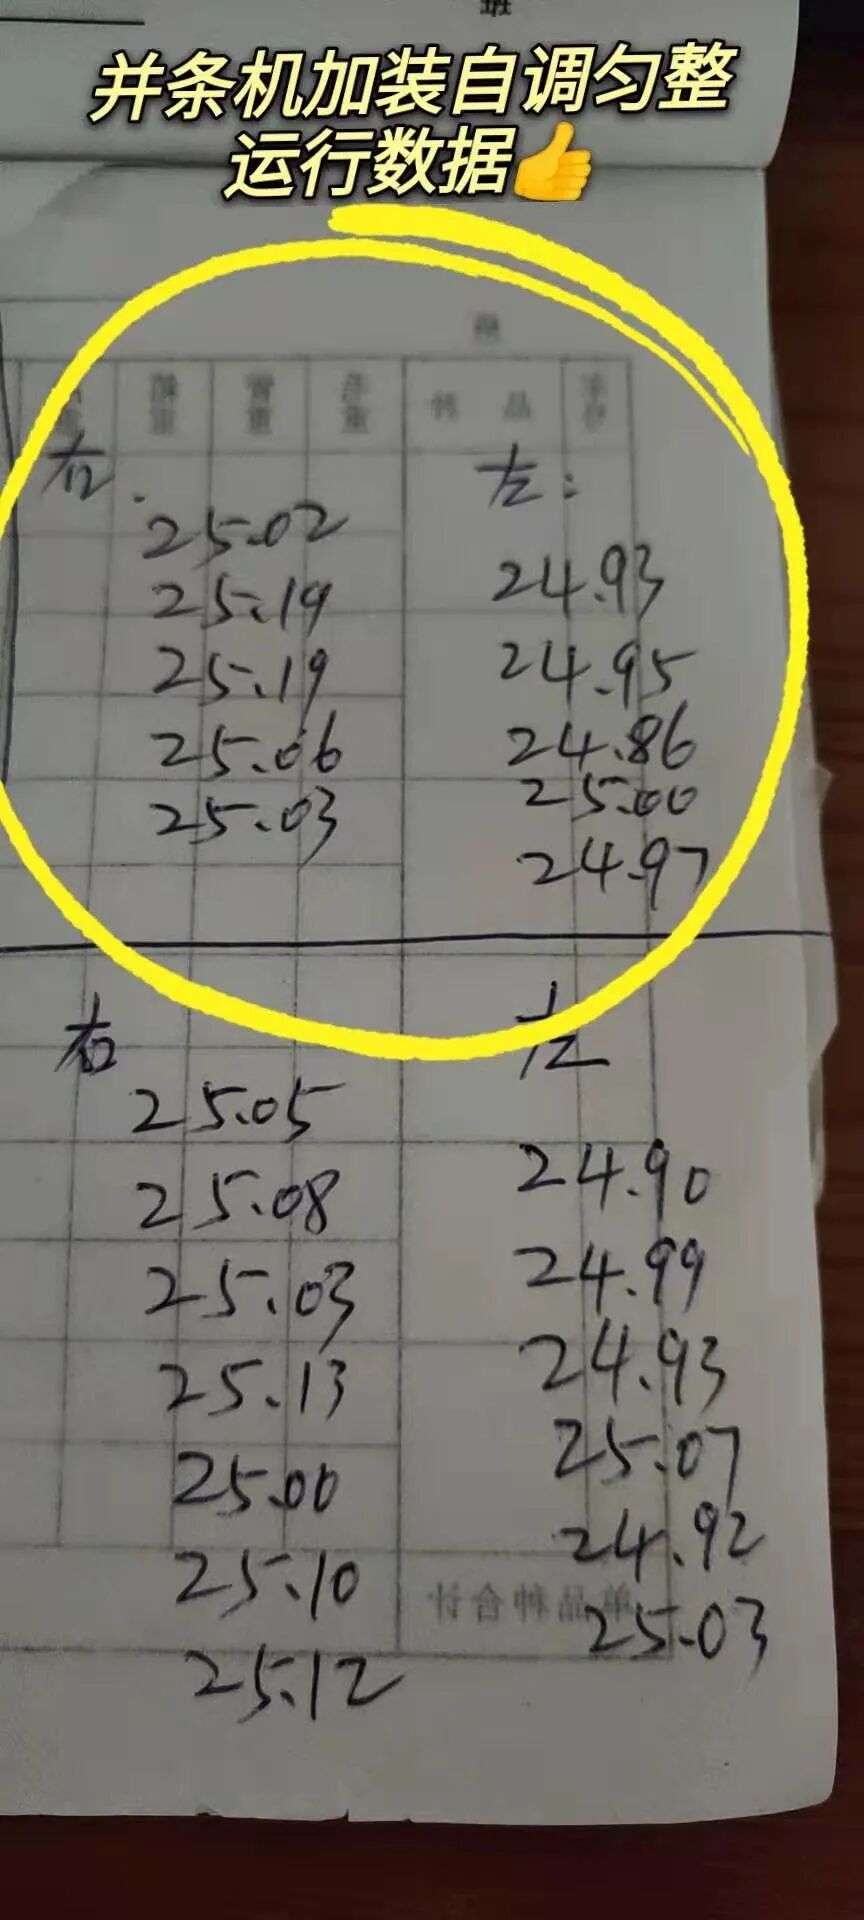 并条机加装自调匀整
运行数据👍
右. 左:
25.02
25.19 24.93
25.19 24.95
25.06 24.86
25.03 25.00
24.97
右 左
25.05
25.08 24.90
25.03 24.99
25.13 24.93
25.00 25.07
25.10 24.92
25.12 25.03
单品种合计